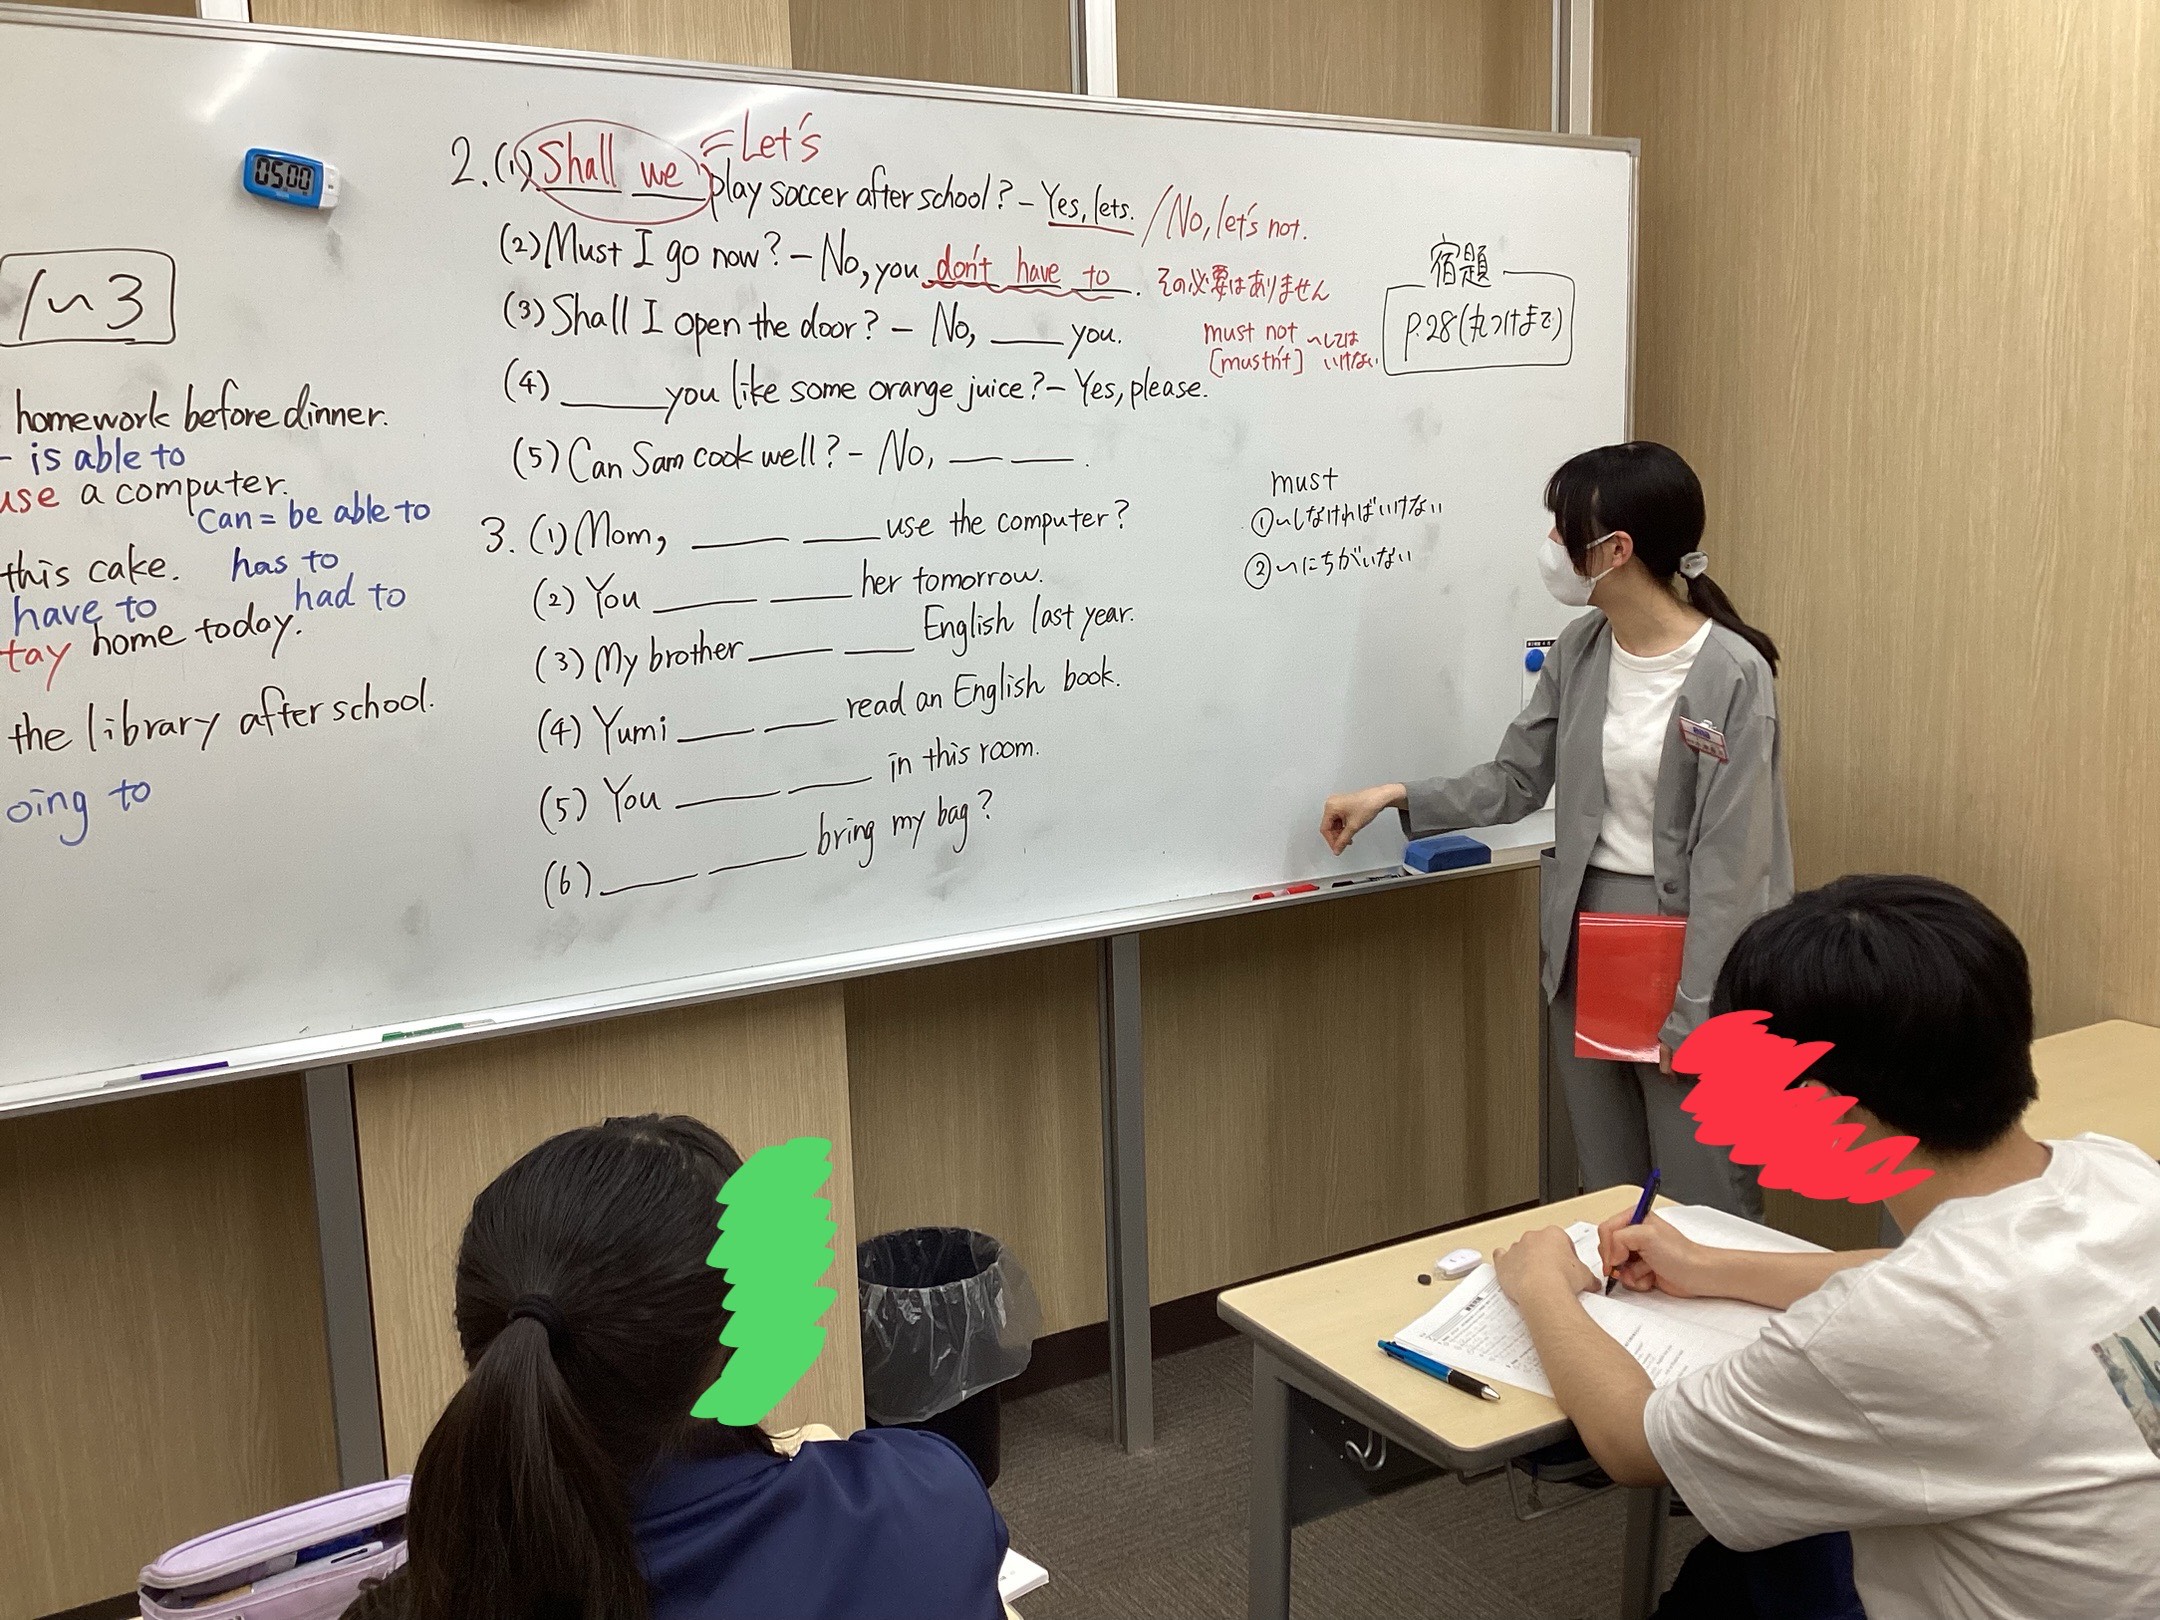 05:00
1~3
homework before dinner.
is able to
use a computer.
can = be able to
this cake. has to
have to had to
tay home today.
the library after school.
oing to
2.(1) Shall we play soccer after school? - Yes, lets. / No, let's not.
= Let's
(2) Must I go now? - No, you don't have to. その必要はありません
(3) Shall I open the door? - No, ___ you.
must not ~しては
[mustn't] いけない
(4) ___ you like some orange juice? - Yes, please.
(5) Can Sam cook well? - No, ___ ___.
3.(1) Mom, ___ ___ use the computer?
(2) You ___ ___ her tomorrow.
(3) My brother ___ ___ English last year.
(4) Yumi ___ ___ read an English book.
(5) You ___ ___ in this room.
(6) ___ ___ bring my bag?
宿題
p.28(丸つけまで)
must
①~しなければいけない
②~にちがいない